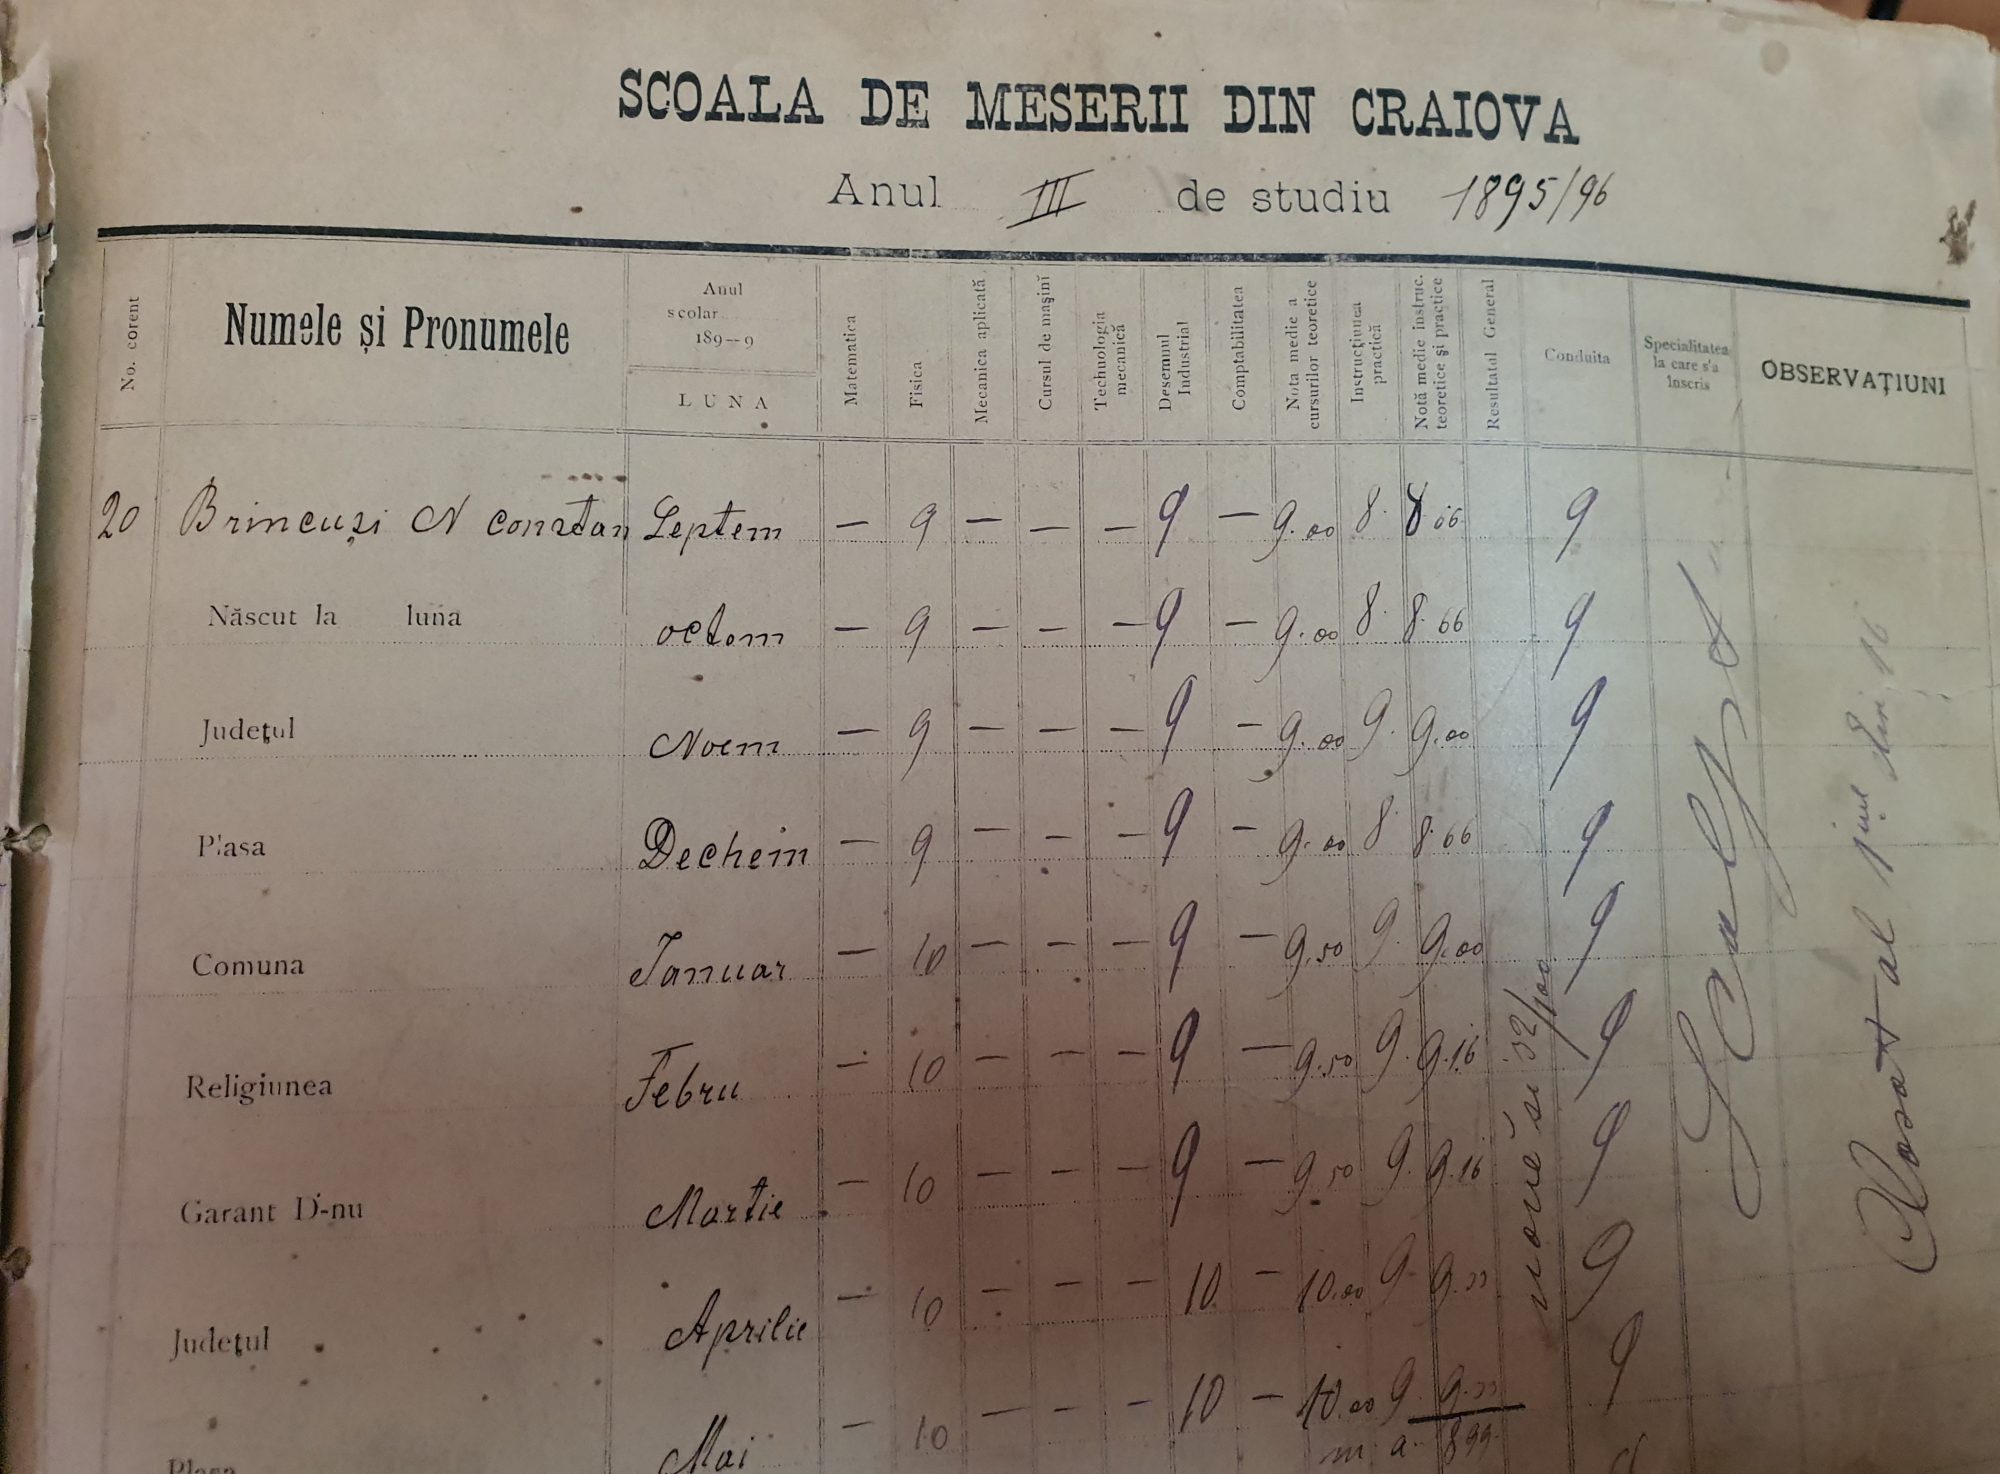 SCOALA DE MESERII DIN CRAIOVA
Anul III de studiu 1895/96
No. corent
Numele și Pronumele
Anul
scolar
189--9
LUNA
Matematica
Fisica
Mecanica aplicată
Cursul de mașinĭ
Technologia
mecanică
Desemnul
Industrial
Comptabilitatea
Nota medie a
cursurilor teoretice
Instrucțiunea
practică
Notă medie instruc.
teoretice și practice
Resultatul General
Conduita
Specialitatea
la care s'a
înscris
OBSERVAȚIUNI
20 Brincuși N constan Septem — 9 — — — 9 — 9.00 8. 8.66 9
Născut la luna octom — 9 — — — 9 — 9.00 8. 8.66 9
Județul Noem — 9 — — — 9 — 9.00 9. 9.00 9
Plasa Dechem — 9 — — — 9 — 9.00 8. 8.66 9
Comuna Ianuar — 10 — — — 9 — 9.50 9. 9.00 9
Religiunea Febru — 10 — — — 9 — 9.50 9. 9.16 9
Garant D-nu Martie — 10 — — — 9 — 9.50 9. 9.16 9
Județul Aprilie — 10 — — — 10 — 10.00 9. 9.33 9
Plasa Mai — 10 — — — 10 — 10.00 9. 9.33 9
m. a. 899
nouĕ si 32/100
Sculpt
al